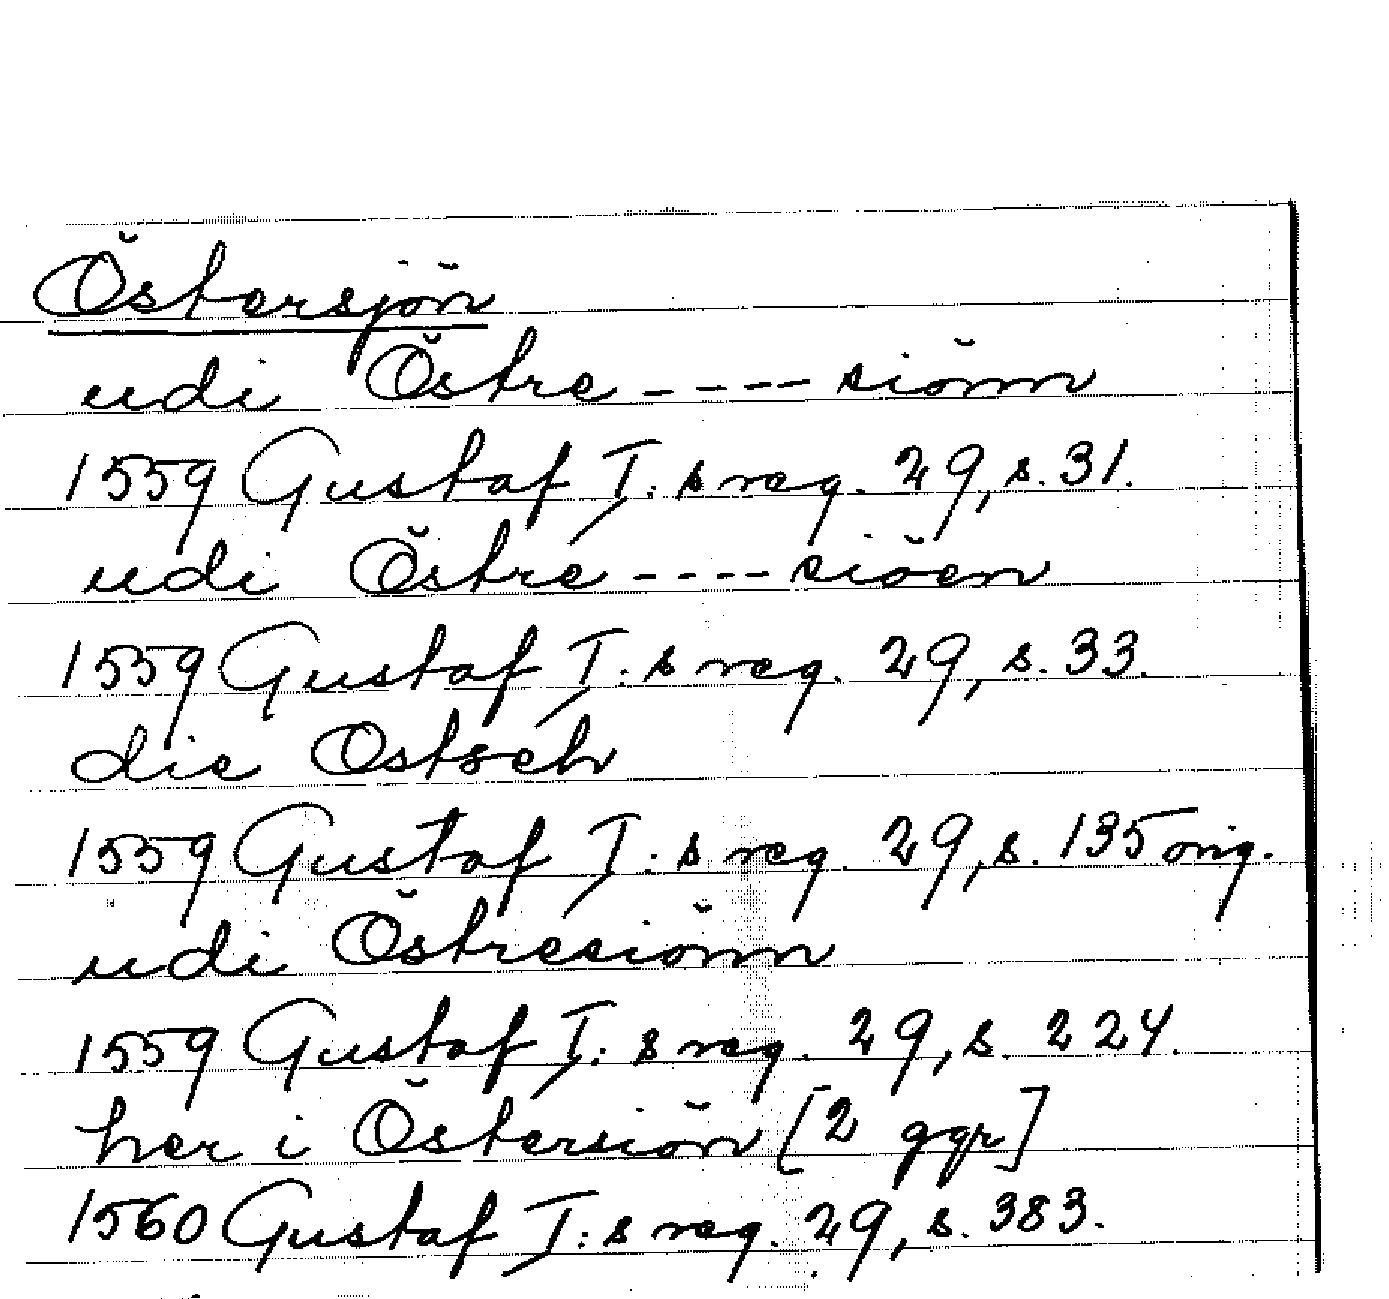 Östersjön
udi Östre - - - - siönn
1559 Gustaf I:s reg. 29, s. 31.
udi Östre - - - - siöen
1559 Gustaf I:s reg. 29, s. 33.
die Ostseh
1559 Gustaf I:s reg. 29, s. 135 orig.
udi Östresiönn
1559 Gustaf I:s reg. 29, s. 224.
her i Östersiön [2 ggr]
1560 Gustaf I:s reg. 29, s. 383.